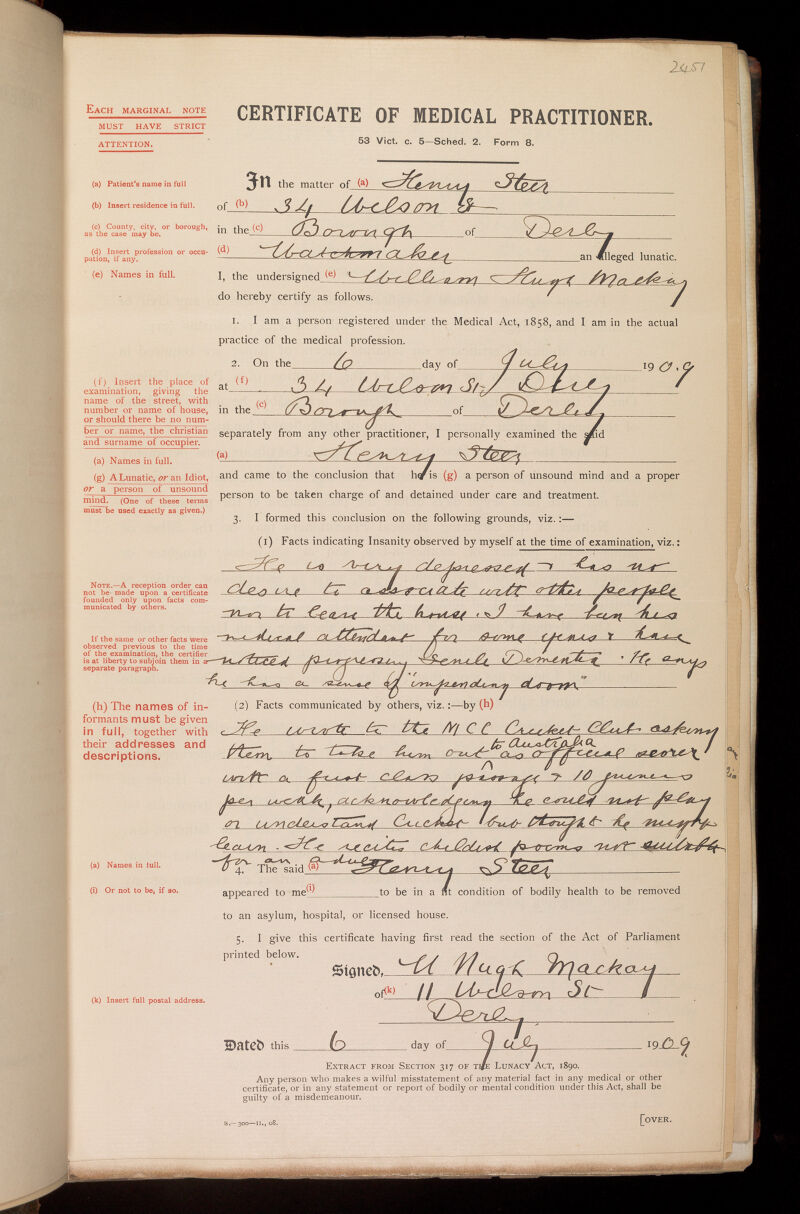 2451
EACH MARGINAL NOTE
MUST HAVE STRICT
ATTENTION.
CERTIFICATE OF MEDICAL PRACTITIONER.
53 Vict. c. 5—Sched. 2. Form 8.
(a) Patient's name in full
In the matter of (a) Henry Steer
(b) Insert residence in full.
of (b) 34 Wilson St
(c) County, city, or borough,
as the case may be.
in the (c) Borough of Derby
(d) Insert profession or occu-
pation, if any.
(d) Watchmaker an alleged lunatic.
(e) Names in full.
I, the undersigned (e) William Hugh Mackay
do hereby certify as follows.
1. I am a person registered under the Medical Act, 1858, and I am in the actual
practice of the medical profession.
2. On the 6 day of July 190.9
(f) Insert the place of
examination, giving the
name of the street, with
number or name of house,
or should there be no num-
ber or name, the christian
and surname of occupier.
at (f) 34 Wilson St, Derby
in the (c) Borough of Derby
separately from any other practitioner, I personally examined the said
(a) Names in full.
(a) Henry Steer
(g) A Lunatic, or an Idiot,
or a person of unsound
mind. (One of these terms
must be used exactly as given.)
and came to the conclusion that he is (g) a person of unsound mind and a proper
person to be taken charge of and detained under care and treatment.
3. I formed this conclusion on the following grounds, viz.:—
(1) Facts indicating Insanity observed by myself at the time of examination, viz.:
NOTE.—A reception order can
not be made upon a certificate
founded only upon facts com-
municated by others.
He is very depressed & has no
desire to associate with other people
nor to leave the house. I have been his
If the same or other facts were
observed previous to the time
of the examination, the certifier
is at liberty to subjoin them in a
separate paragraph.
medical attendant for some years & have
noticed progressing Senile Dementia. He says
he has a sense of "impending doom"
(h) The names of in-
formants must be given
in full, together with
their addresses and
descriptions.
(2) Facts communicated by others, viz.:—by (h)
He wrote to the MCC Cricket Club asking
them to take him out to Australia as official scorer
with a first class passage & 10 guineas
per week, acknowledging he could not play
or understand Cricket but thought he might
learn. He recites childish poems not suitable
for an adult
(a) Names in full.
4. The said (a) Henry Steer
(i) Or not to be, if so.
appeared to me (i) to be in a fit condition of bodily health to be removed
to an asylum, hospital, or licensed house.
5. I give this certificate having first read the section of the Act of Parliament
printed below.
Signed, W Hugh Mackay
(k) Insert full postal address.
of (k) 11 Wilson St
Derby.
Dated this 6 day of July 1909
EXTRACT FROM SECTION 317 OF THE LUNACY ACT, 1890.
Any person who makes a wilful misstatement of any material fact in any medical or other
certificate, or in any statement or report of bodily or mental condition under this Act, shall be
guilty of a misdemeanour.
S.—300—11., 08.
[OVER.